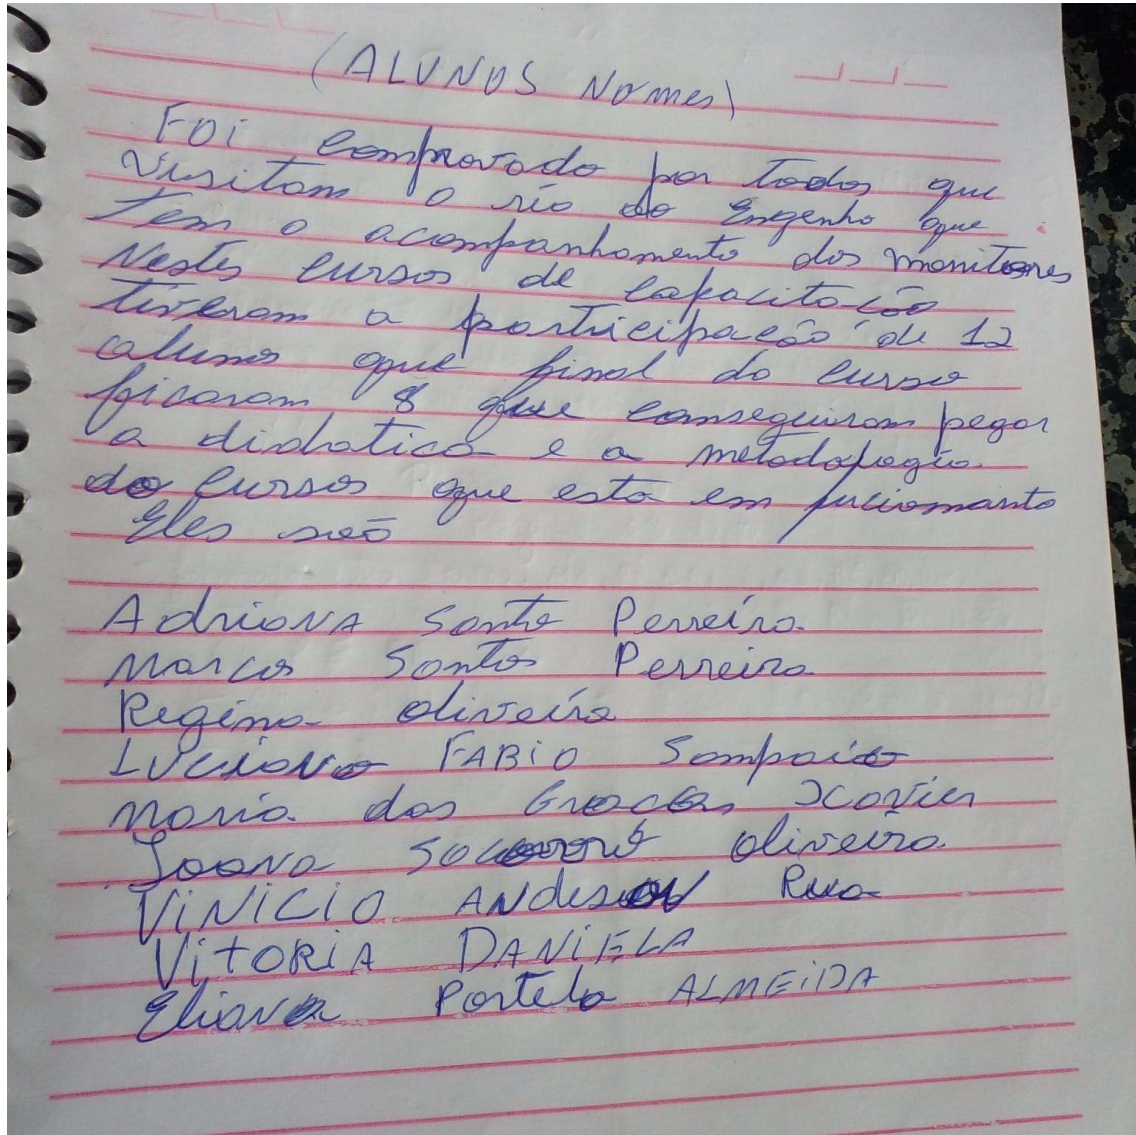 (ALUNOS Nomes)
FOi comprovado por todos que
Visitam o rio do Engenho que
Tem o acompanhamento dos monitores
Nestes cursos de capacitação
tiveram a participação de 12
alunos que final do curso
ficaram 8 que conseguiram pegar
a didhatica e a metodologia
do cursos que está em fuciomanto
Eles são
AdrianA Santo Perreira
Marcos Santos Perreira
Regina oliveira
LUCiano FABiO Sampaio
Maria das Gracas Xavier
Joana Socorro oliveira
ViNiCiO ANdeson
ViTORiA DANiELA
Eliana Portela ALMEiDA